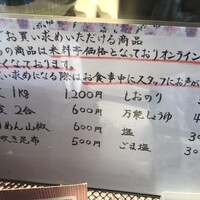 でお買い求めいただける商品
の商品は来料亭価格となっておりオンライン
くなっております。
買い求めになる際はお食事中にスタッフにお声が
1kg 1,200円 しおのり
食 2合 600円 万能しょうゆ
めん山椒 600円 塩
吹き昆布 500円 ごま塩